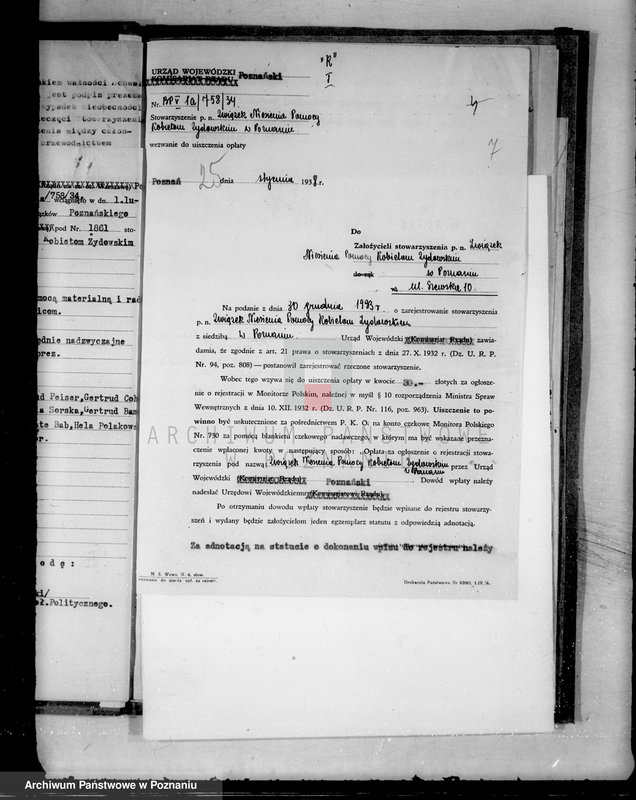 kiem ważności uchwał
jest podpis prezesa
wypadek nieobecności
ieczęci Stowarzyszenia
enia między człon-
przewodnictwem
/758/34
wciągnięto w dn. 1.lu-
zków Poznańskiego
pod Nr. 1861 sto-
Kobietom Żydowskim
mocą materialną i rad
icom.
ednie nadzwyczajne
prez.
d Peiser,Gertrud Coh
a Sorska,Gertrud Bam
te Rab,Hela Polakows
or.
o d ę :
ki/
oł.Politycznego.
"R"
I
URZĄD WOJEWÓDZKI
KOMISARIAT RZĄDU Poznański
Nr. APV 1a/758/34.
Stowarzyszenie p. n. Związek Niesienia Pomocy
Kobietom Żydowskim w Poznaniu
wezwanie do uiszczenia opłaty
4
7
Poznań 25 dnia stycznia 193 r.
Do
Założycieli stowarzyszenia p. n. Związek
Niesienia Pomocy Kobietom Żydowskim
do rąk w Poznaniu
w ul. Szewska 10.
Na podanie z dnia 30 grudnia 1933 r o zarejestrowanie stowarzyszenia
p. n. Związek Niesienia Pomocy Kobietom Żydowskim
z siedzibą w Poznaniu Urząd Wojewódzki (Komisariat Rządu) zawia-
damia, że zgodnie z art. 21 prawa o stowarzyszeniach z dnia 27. X. 1932 r. (Dz. U. R. P.
Nr. 94, poz. 808) — postanowił zarejestrować rzeczone stowarzyszenie.
Wobec tego wzywa się do uiszczenia opłaty w kwocie 30,- złotych za ogłosze-
nie o rejestracji w Monitorze Polskim, należnej w myśl § 10 rozporządzenia Ministra Spraw
Wewnętrznych z dnia 10. XII. 1932 r. (Dz. U. R. P. Nr. 116, poz. 963). Uiszczenie to po-
winno być uskutecznione za pośrednictwem P. K. O. na konto czekowe Monitora Polskiego
Nr. 730 za pomocą blankietu czekowego nadawczego, w którym ma być wskazane przezna-
czenie wpłaconej kwoty w następujący sposób: „Opłata za ogłoszenie o rejestracji stowa-
rzyszenia pod nazwą Związek Niesienia Pomocy Kobietom Żydowskim w Poznaniu przez Urząd
Wojewódzki (Komisariat Rządu) Poznański Dowód wpłaty należy
nadesłać Urzędowi Wojewódzkiemu (Komisariatowi Rządu).
Po otrzymaniu dowodu wpłaty stowarzyszenie będzie wpisane do rejestru stowarzy-
szeń i wydany będzie założycielom jeden egzemplarz statutu z odpowiedzią adnotacją.
Za adnotacją na statucie o dokonaniu wpisu do rejestru należy
M. S. Wewn. N. 4. stow.
wezwanie do uiszcz. opł. za rejestr.
Drukarnia Państwowa Nr 63063.
ARCHIWUM PAŃSTWOWE
W POZNANIU
Archiwum Państwowe w Poznaniu